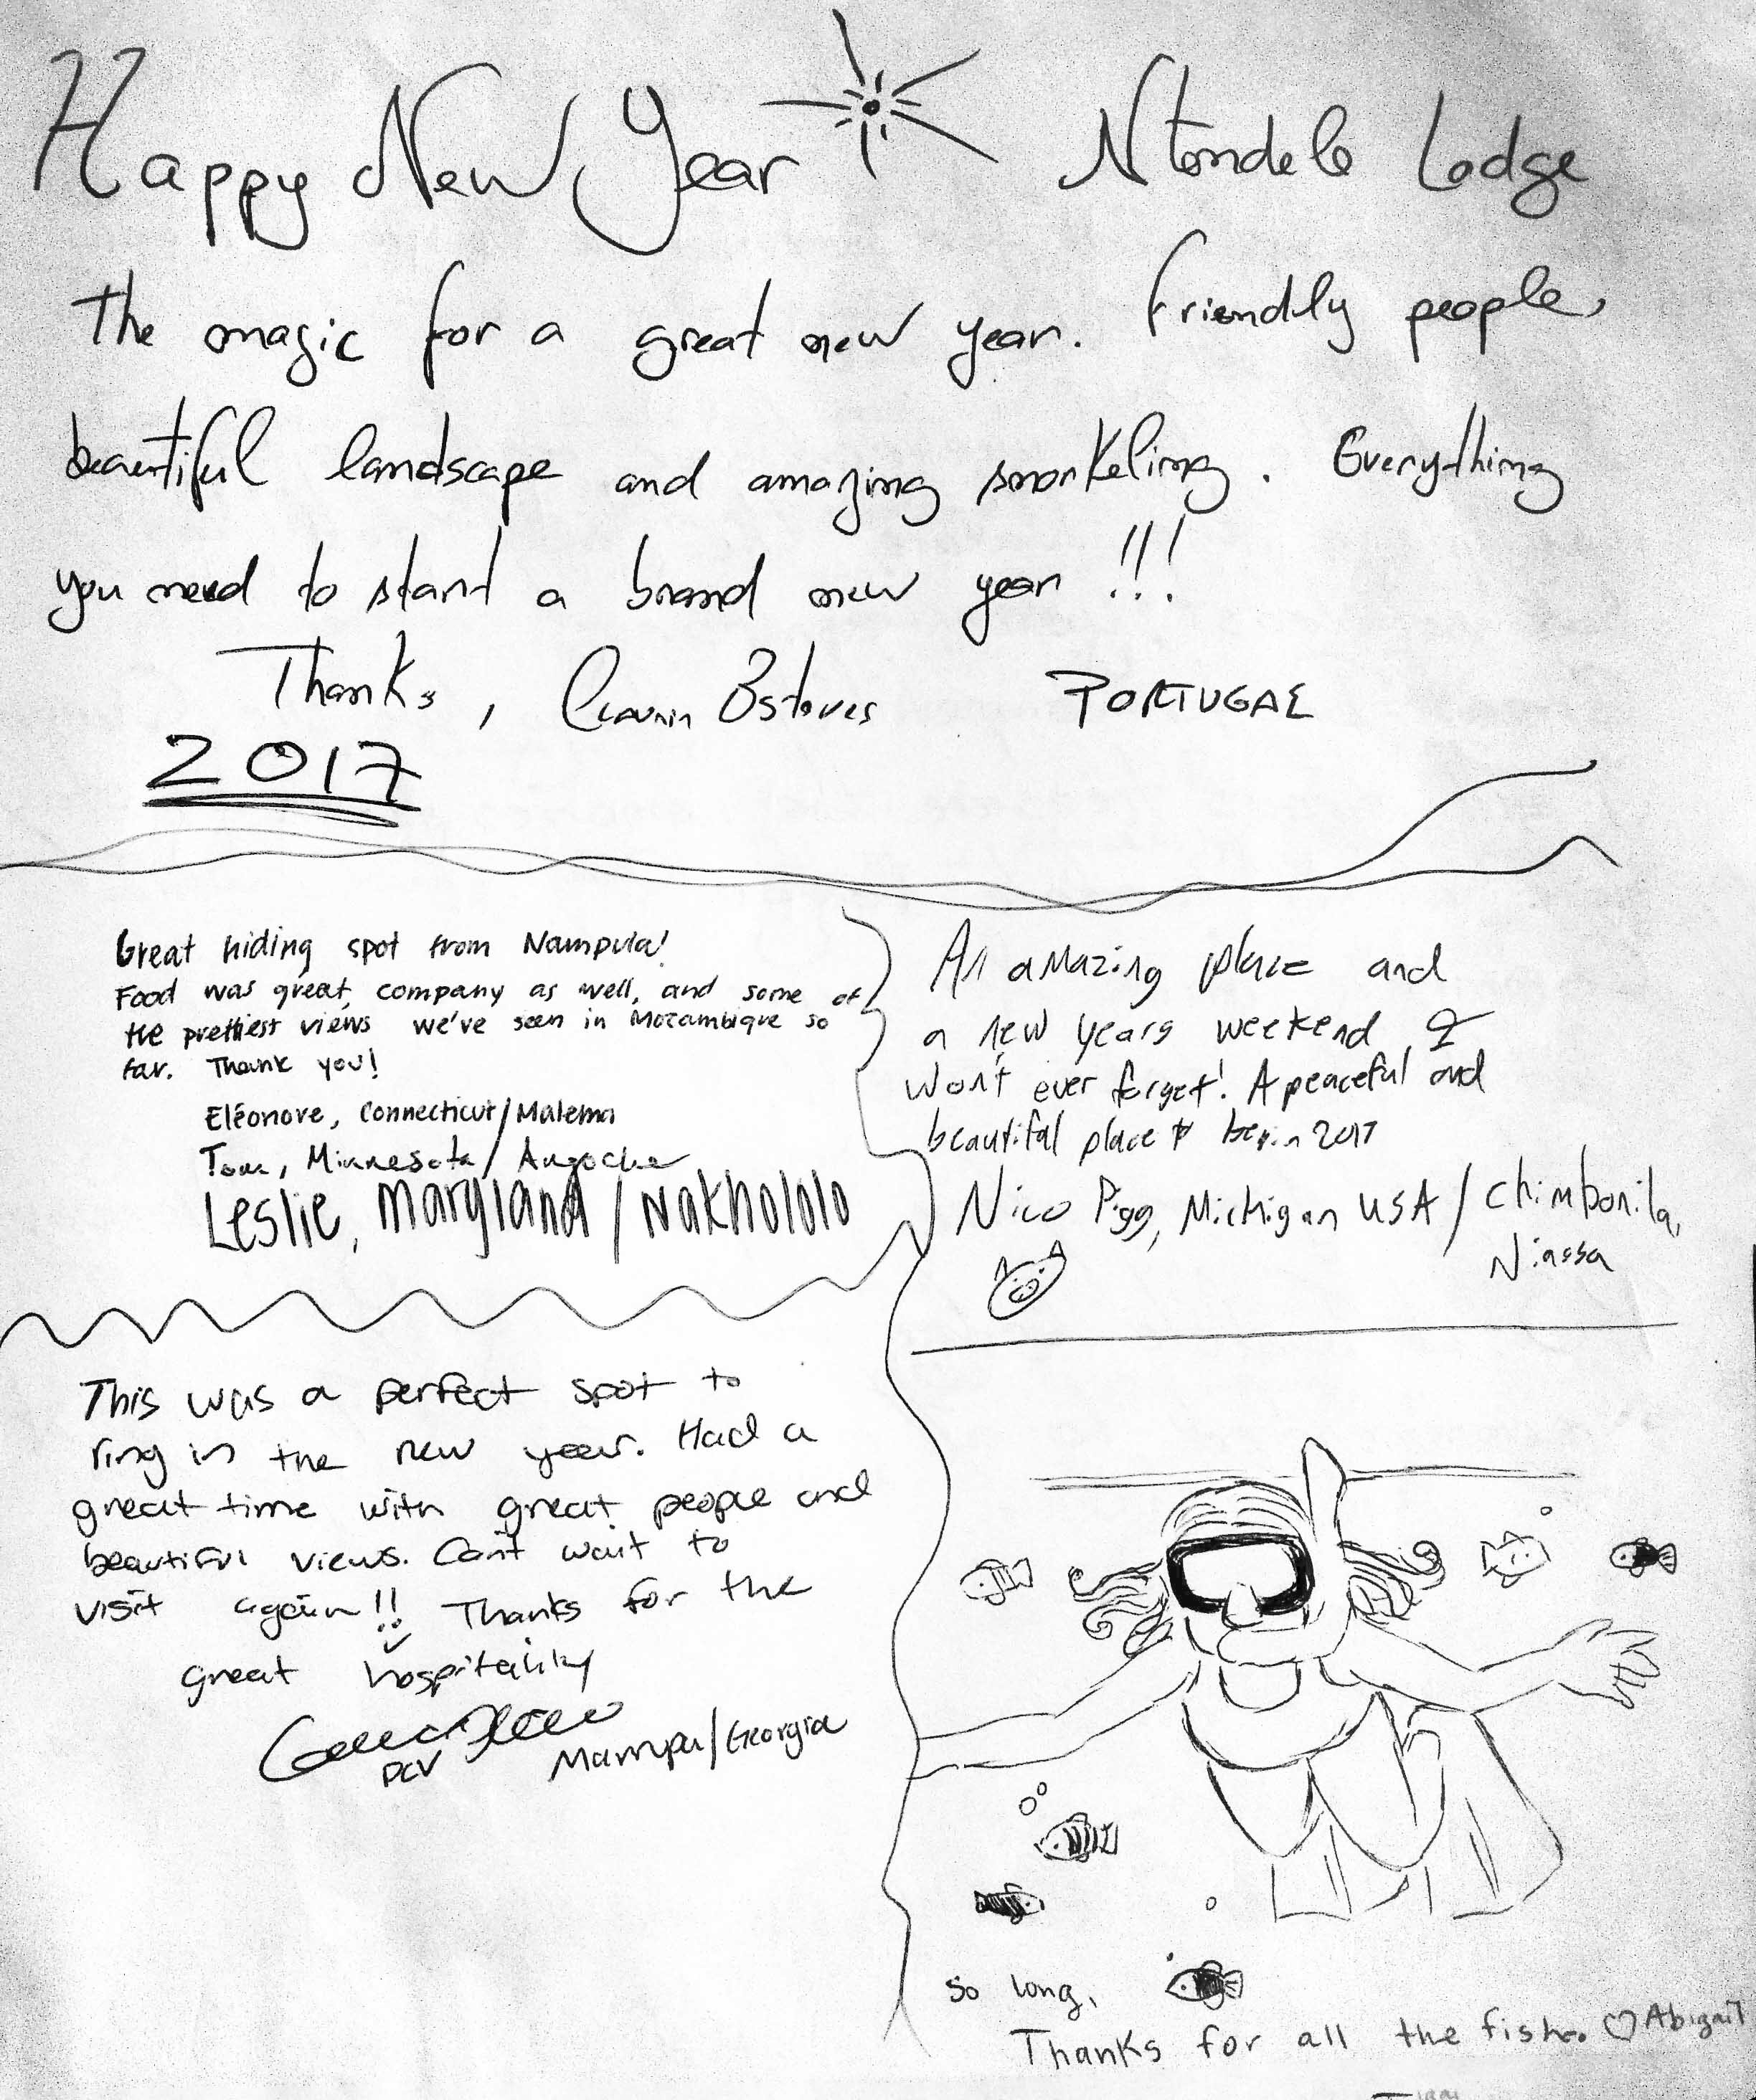 Happy New Year Ntondele Lodge
The magic for a great new year. Friendly people,
beautiful landscape and amazing snorkeling. Everything
you need to start a brand new year !!!
Thanks, PORTUGAL
2017
Great hiding spot from Nampula!
Food was great, company as well, and some of
the prettiest views we've seen in Mozambique so
far. Thank you!
Eléonore, Connecticut/Malema
Tom, Minnesota/Angoche
Leslie, Maryland/Nakhololo
An amazing place and
a new years weekend I
won't ever forget! A peaceful and
beautiful place to begin 2017
Nico Pigg, Michigan USA/Chimbonila,
Niassa
This was a perfect spot to
ring in the new year. Had a
great time with great people and
beautiful views. Can't wait to
visit again!! Thanks for the
great hospitality
PCV
/Georgia
So long,
Thanks for all the fish. ♡Abigail